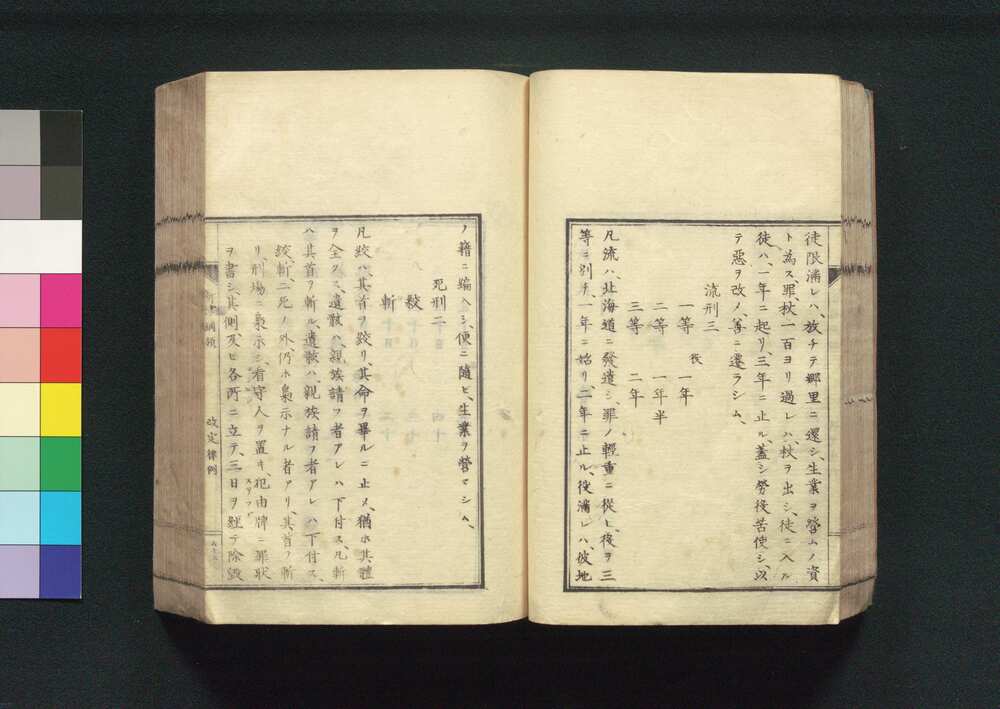 徒限滿レハ、放チテ鄉里ニ還シ、生業ヲ營ムノ資
ト為ス、罪、杖一百ヨリ過レハ、杖ヲ出シ、徒ニ入ル
徒ハ、一年ニ起リ、三年ニ止ル、蓋シ勞役苦使シ、以
テ惡ヲ改メ、善ニ遷ラシム、
流刑三
一等 役 一年
二等 一年半
三等 二年
凡流ハ、北海道ニ發遣シ、罪ノ輕重ニ從ヒ、役ヲ三
等ニ別チ、一年ニ始リ、二年ニ止ル、役滿レハ、彼地
ノ籍ニ編入シ、便ニ隨ヒ、生業ヲ營マシム、
死刑二
絞
斬
凡絞ハ、其首ヲ絞リ、其命ヲ畢ルニ止メ、猶ホ其體
ヲ全クス、遺骸ハ、親族請フ者アレハ下付ス、凡斬
ハ其首ヲ斬ル、遺骸ハ、親族請フ者アレハ下付ス、
絞斬、二死ノ外、仍ホ梟示ナル者アリ、其首ヲ斬
リ、刑場ニ梟示シ、看守人ヲ置キ、犯由牌ニ罪狀
ヲ書シ、其側及ヒ各所ニ立テ、三日ヲ經テ除毀
ステフダ
綱領
改定律例